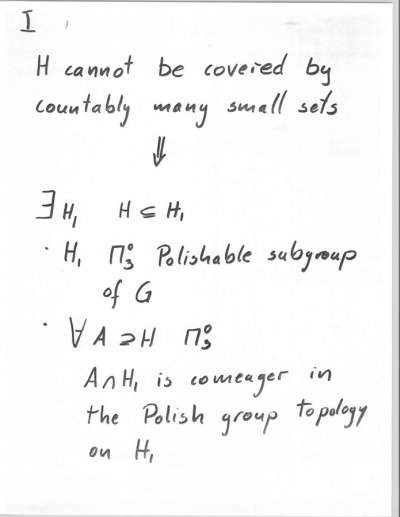 I
H cannot be covered by
countably many small sets
⇓
∃ H₁ H ⊆ H₁
· H₁ Π⁰₃ Polishable subgroup
of G
· ∀ A ⊇ H Π⁰₃
A∩H₁ is comeager in
the Polish group topology
on H₁